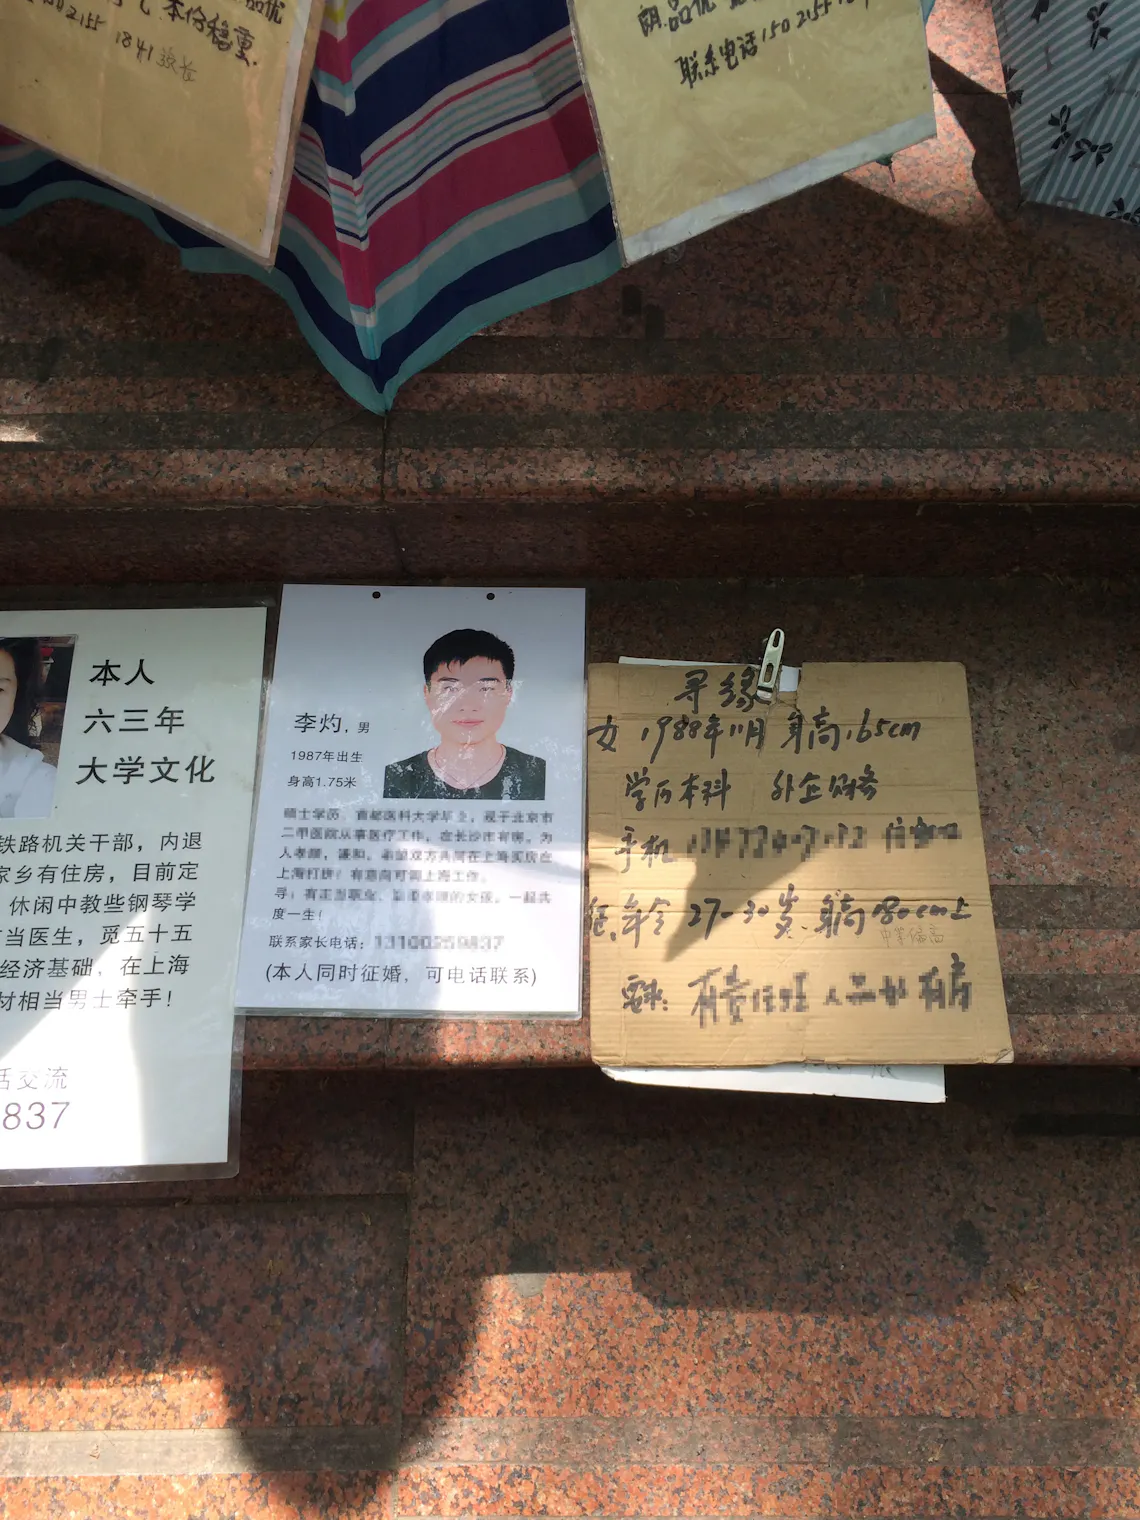 品优
本份稳重.
2155 1841 家长
朗.品优
联系电话150 2155
本人
六三年
大学文化
铁路机关干部，内退
家乡有住房，目前定
休闲中教些钢琴学
当医生，觅五十五
经济基础，在上海
材相当男士牵手！
话交流
837
李灼，男
1987年出生
身高1.75米
硕士学历，首都医科大学毕业，现于北京市
二甲医院从事医疗工作，在长沙市有房，为
人孝顺，谦和。希望双方共同在上海买房在
上海打拼！有意向可调上海工作。
寻：有正当职业、温柔孝顺的女孩，一起共
度一生！
联系家长电话：
(本人同时征婚，可电话联系)
寻缘
女 1988年11月 身高1.65cm
学历本科 外企财务
手机
年令 27-30岁. 身高180cm上
要求: 有责任 人品好 有房